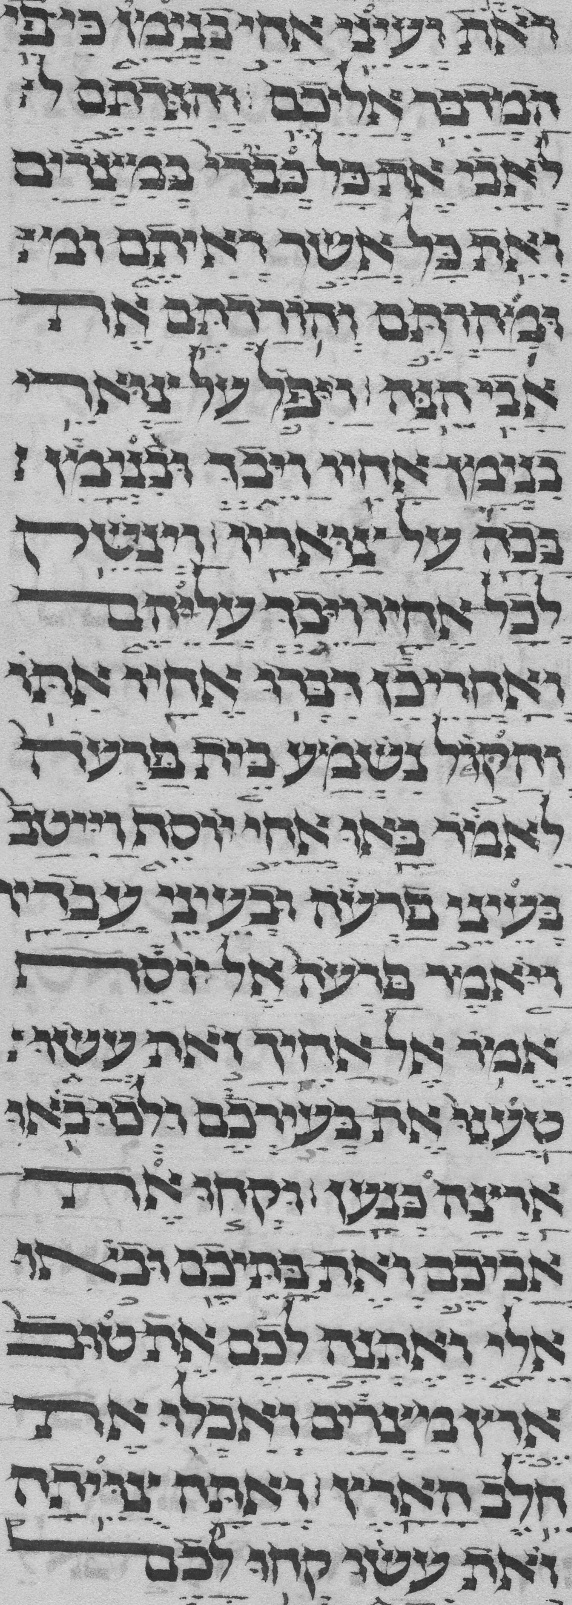 ראת ועיני אחי בנימן כי פי
המדבר אליכם והגדתם
לאבי את כל כבדי במצרים
ואת כל אשר ראיתם
ומהרתם והורדתם את
אבי הנה ויפל על צוארי
בנימן אחיו ויבך ובנימן
בכה על צואריו וינשק
לכל אחיו ויבך עליהם
ואחרי כן דברו אחיו אתו
והקול נשמע בית פרעה
לאמר באו אחי יוסף וייטב
בעיני פרעה ובעיני עבדיו
ויאמר פרעה אל יוסף
אמר אל אחיך זאת עשו
טענו את בעירכם ולכו באו
ארצה כנען וקחו את
אביכם ואת בתיכם ובאו
אלי ואתנה לכם את טוב
ארץ מצרים ואכלו את
חלב הארץ ואתה צויתה
זאת עשו קחו לכם